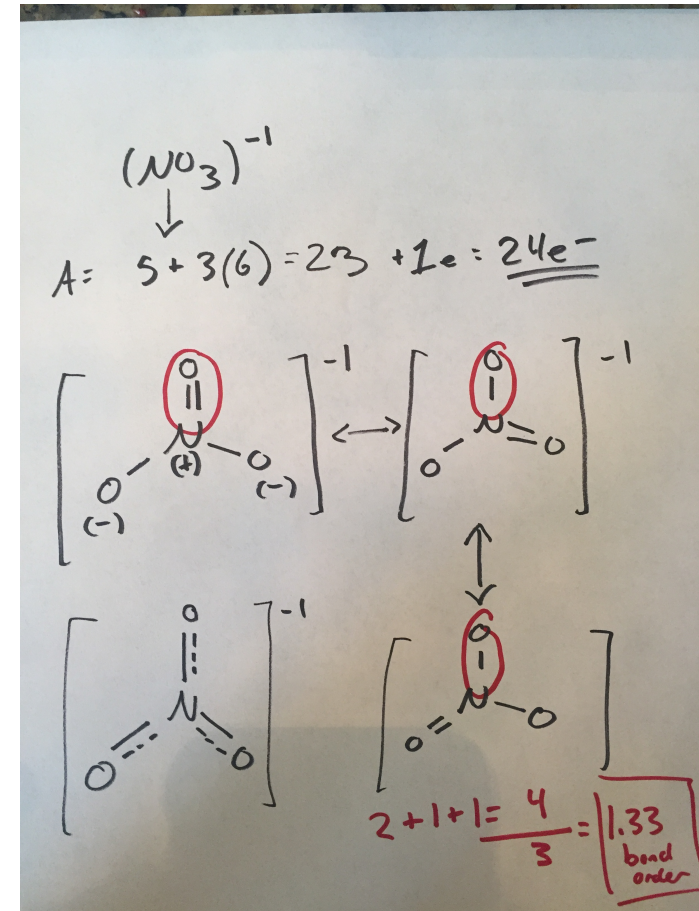 (NO₃)⁻¹
↓
A= 5+3(6)=23 +1e = 24e⁻
[ O -1 ↔ [ O -1
|| |
N N
(+) O O
O (-) O
(-)
↕
[ O ]-1 [ O ]
N N
O O O O
2+1+1= 4/3 = 1.33
bond
order